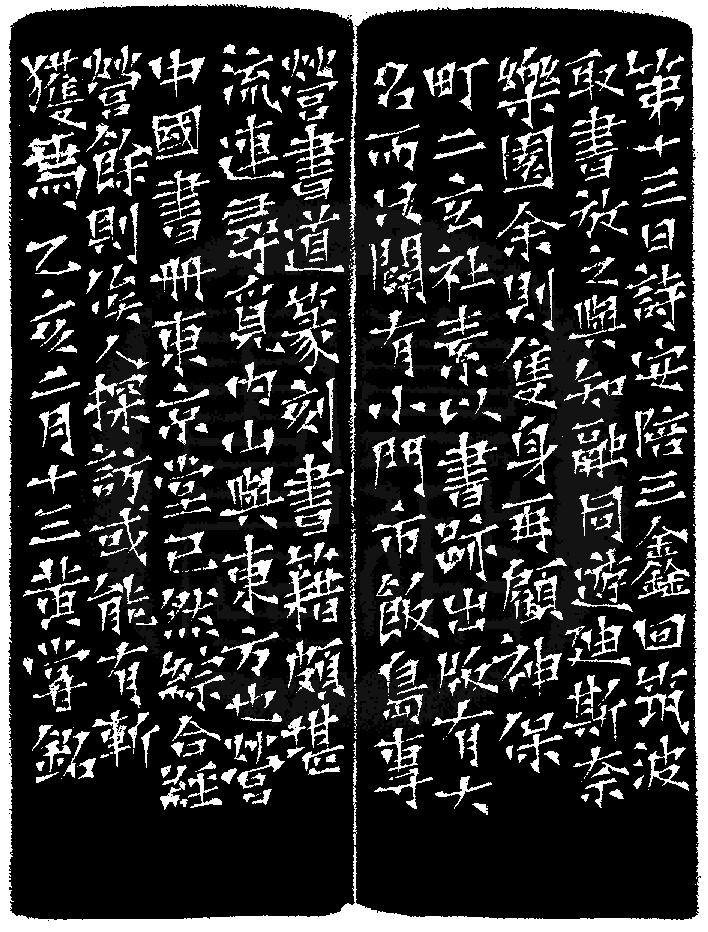 第十三日詩安陪三鑫回筑波
取書放之與知融同遊廸斯奈
樂園余則隻身再顧神保
町二玄社素以書跡出版有大
名而只闢有小門市飯島專
營書道篆刻書籍頗堪
流連尋覓内山與東方也營
中國書冊東京堂已然綜合經
營餘則俟人探訪或能有斬
獲焉乙亥二月十三黄嘗銘